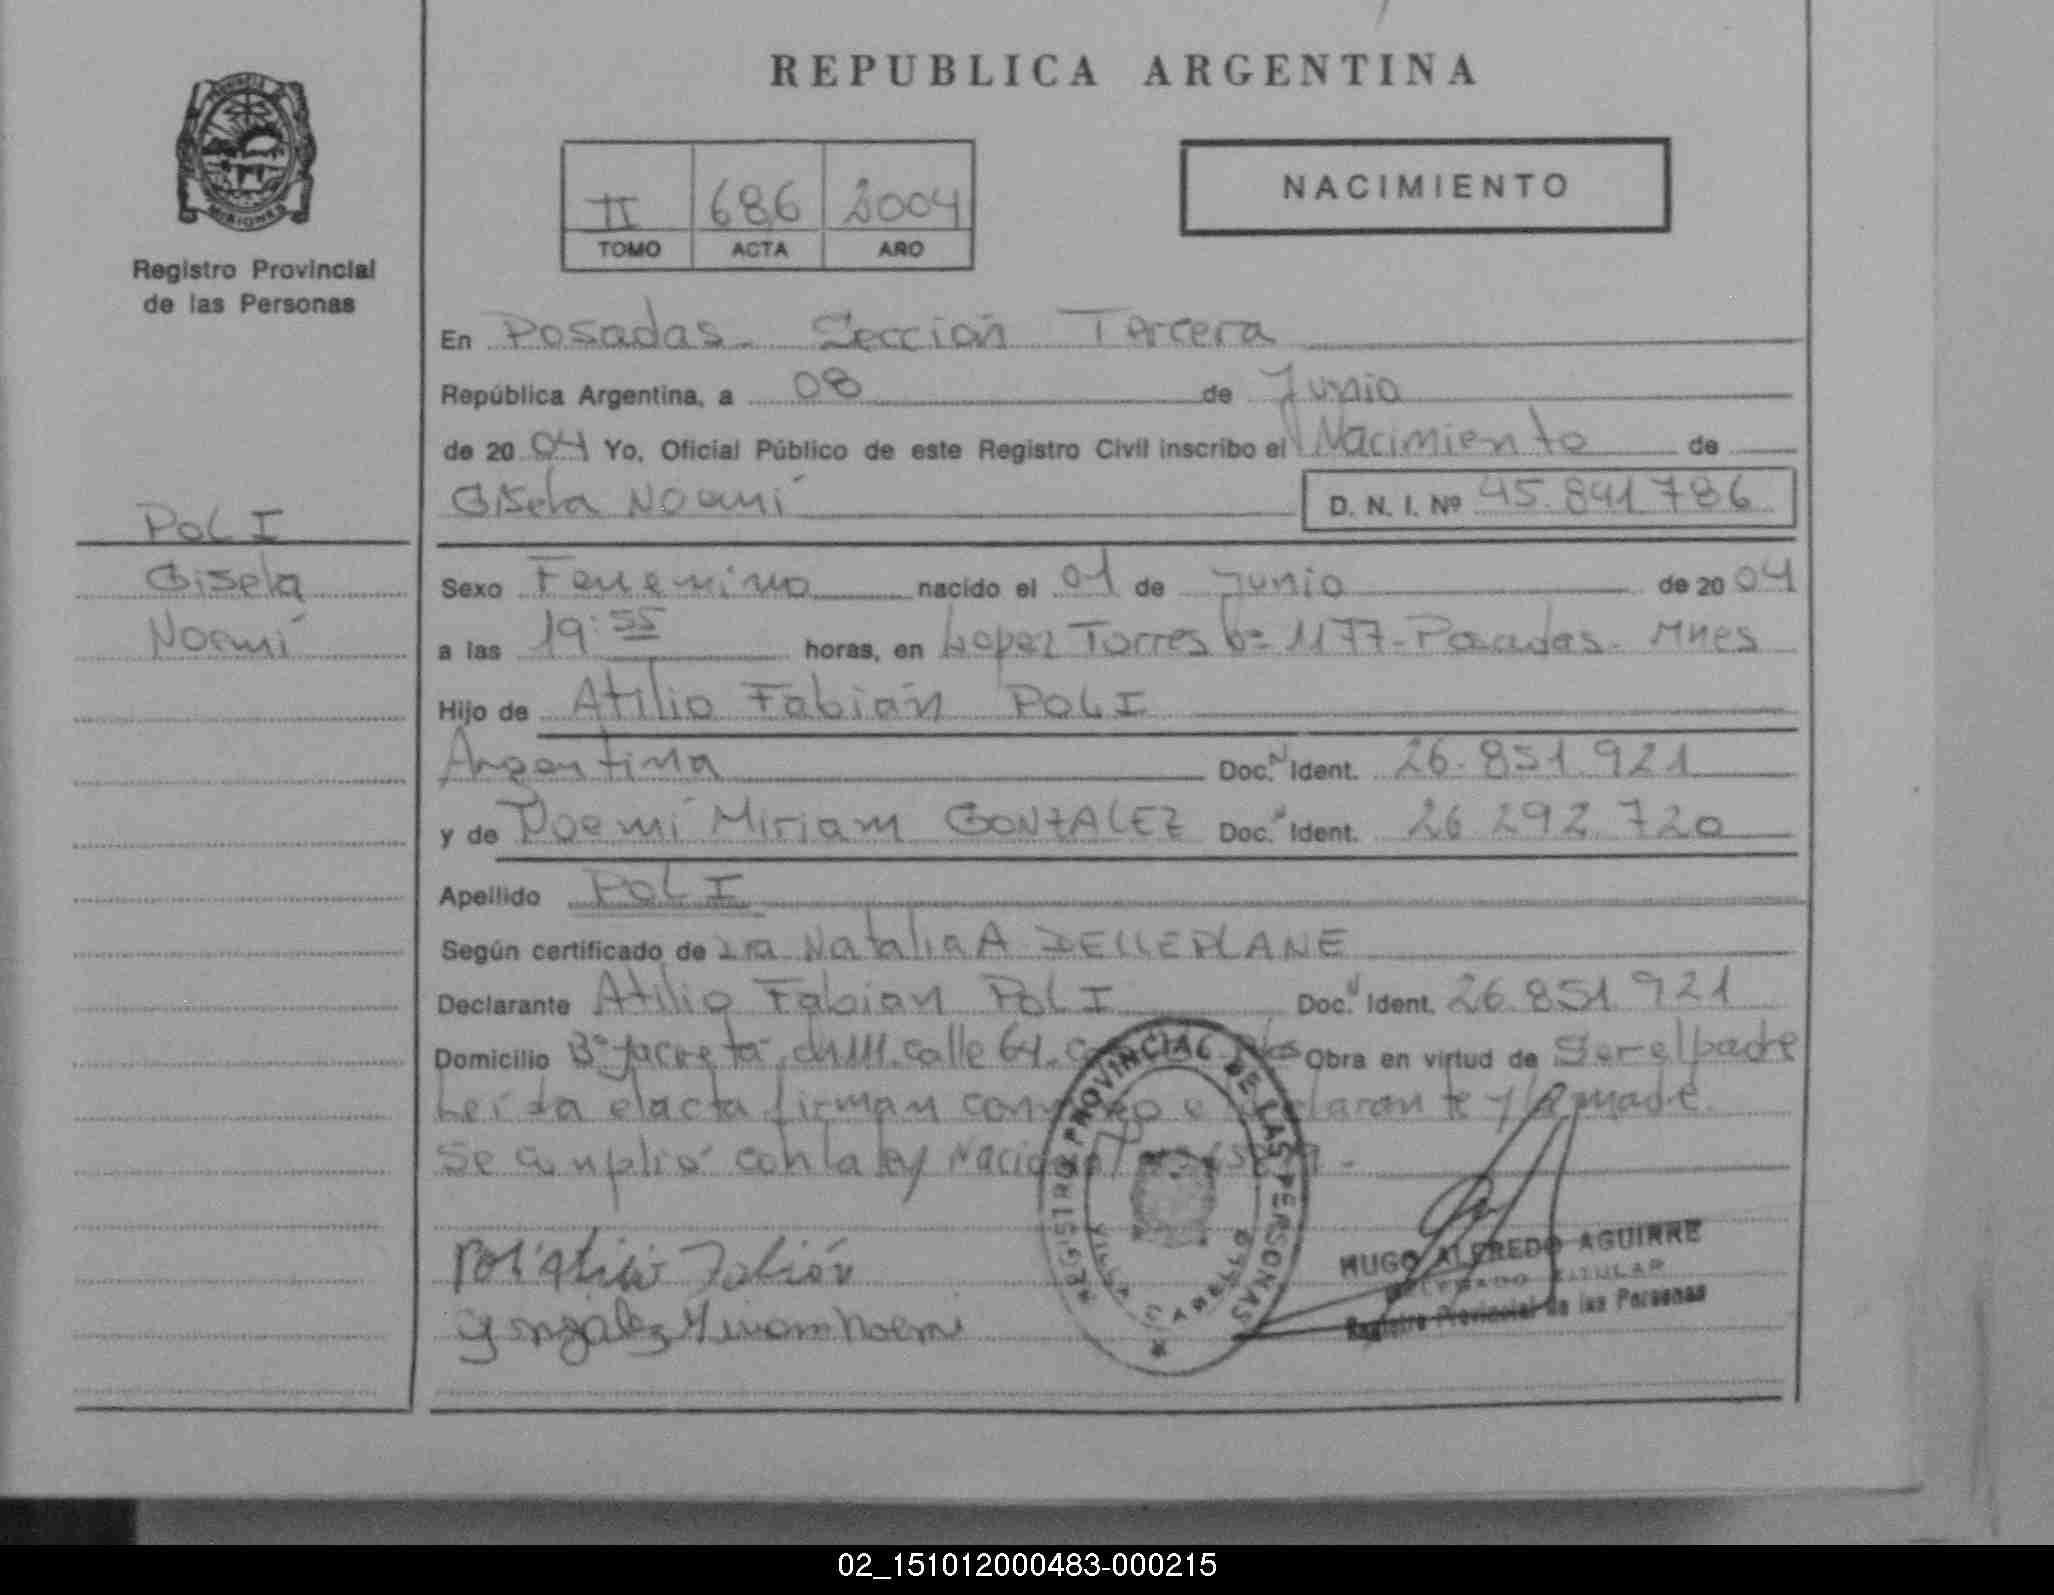 REPUBLICA ARGENTINA
PROVINCIA
MISIONES
Registro Provincial
de las Personas
II 686 2004
TOMO ACTA AÑO
NACIMIENTO
En Posadas. Sección Tercera
República Argentina, a 08 de Junio
de 20 04 Yo, Oficial Público de este Registro Civil inscribo el Nacimiento de
Gisela Noemí D. N. I. Nº 45.841.786
POLI
Gisela
Noemí
Sexo Femenino nacido el 01 de Junio de 20 04
a las 19:55 horas, en Lopez Torres Nº 1177-Posadas-Mnes
Hijo de Atilio Fabián POLI
Argentina Doc. N Ident. 26.851.921
y de Noemí Miriam GONZALEZ Doc. N Ident. 26.292.720
Apellido POLI
Según certificado de Dra Natalia A DELLEPLANE
Declarante Atilio Fabian POLI Doc. N Ident. 26.851.921
Domicilio Bº Yacyretá, ch 111. calle 64. Obra en virtud de Ser el padre
Leída el acta firman conmigo el declarante y la madre.
Se cumplió con la ley Nacional
Poli Atilio Fabián
Gonzalez Miriam Noemi
REGISTRO PROVINCIAL DE LAS PERSONAS
VILLA CABELLO
HUGO ALFREDO AGUIRRE
DELEGADO TITULAR
Registro Provincial de las Personas
02_151012000483-000215